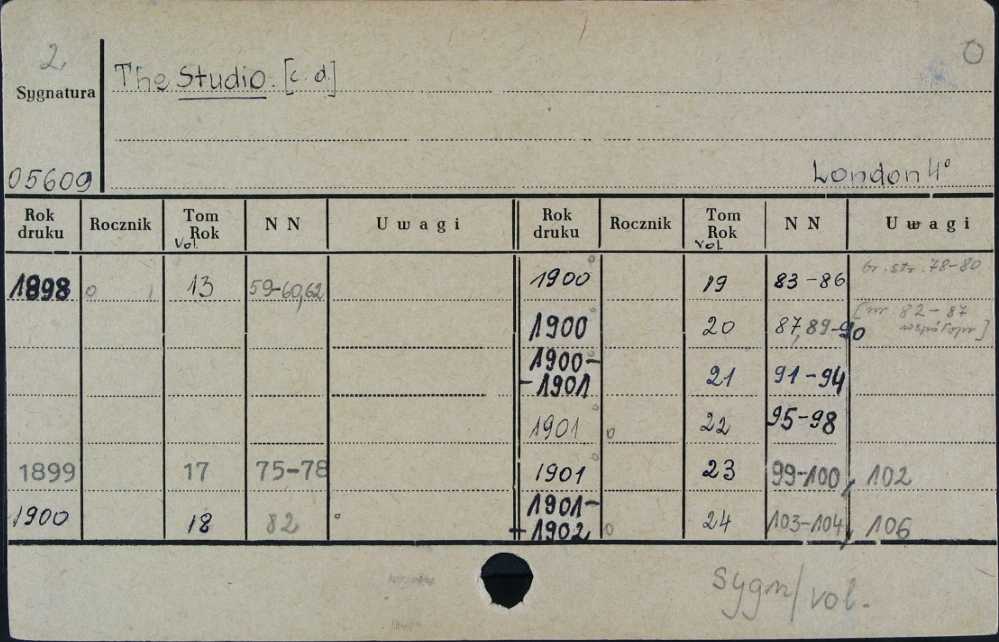 2.
The Studio. [c. d.]
Sygnatura
05609
London 4°
Rok druku Rocznik Tom Rok Vol. NN Uwagi Rok druku Rocznik Tom Rok vol. NN Uwagi
1898 o 13 59-60,62
1900° 19 83-86 br. str. 78-80
1900° 20 87,89-90 [nr. 82-87 współopr]
1900-1901° 21 91-94
1901° o 22 95-98
1899 17 75-78
1901° 23 99-100, 102
1900 18 82 °
1901-1902 o 24 103-104, 106
sygn/vol.